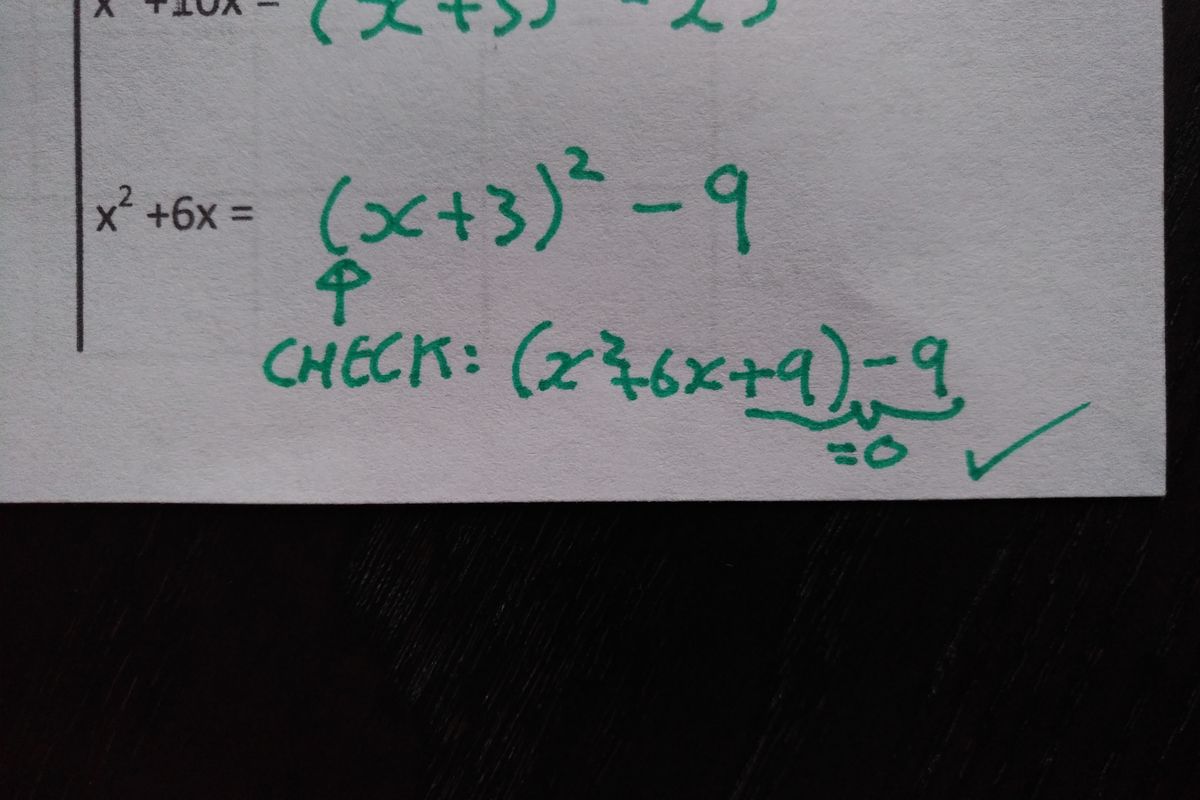 x² +10x = (x+5)² - 25
x² +6x = (x+3)² - 9
CHECK: (x²+6x+9)-9
=0 ✓